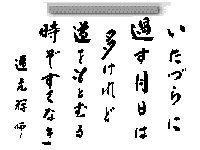 いたづらに
過す月日は
多けれど
道をもとむる
時ぞすくなき
道元禅師